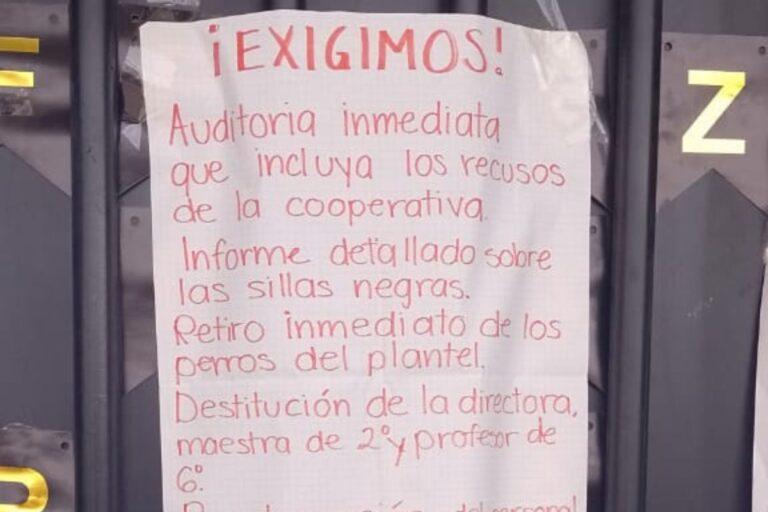 ¡EXIGIMOS!
Auditoria inmediata
que incluya los recusos
de la cooperativa.
Informe detallado sobre
las sillas negras.
Retiro inmediato de los
perros del plantel.
Destitución de la directora,
maestra de 2º y profesor de
6º.
del personal
Z